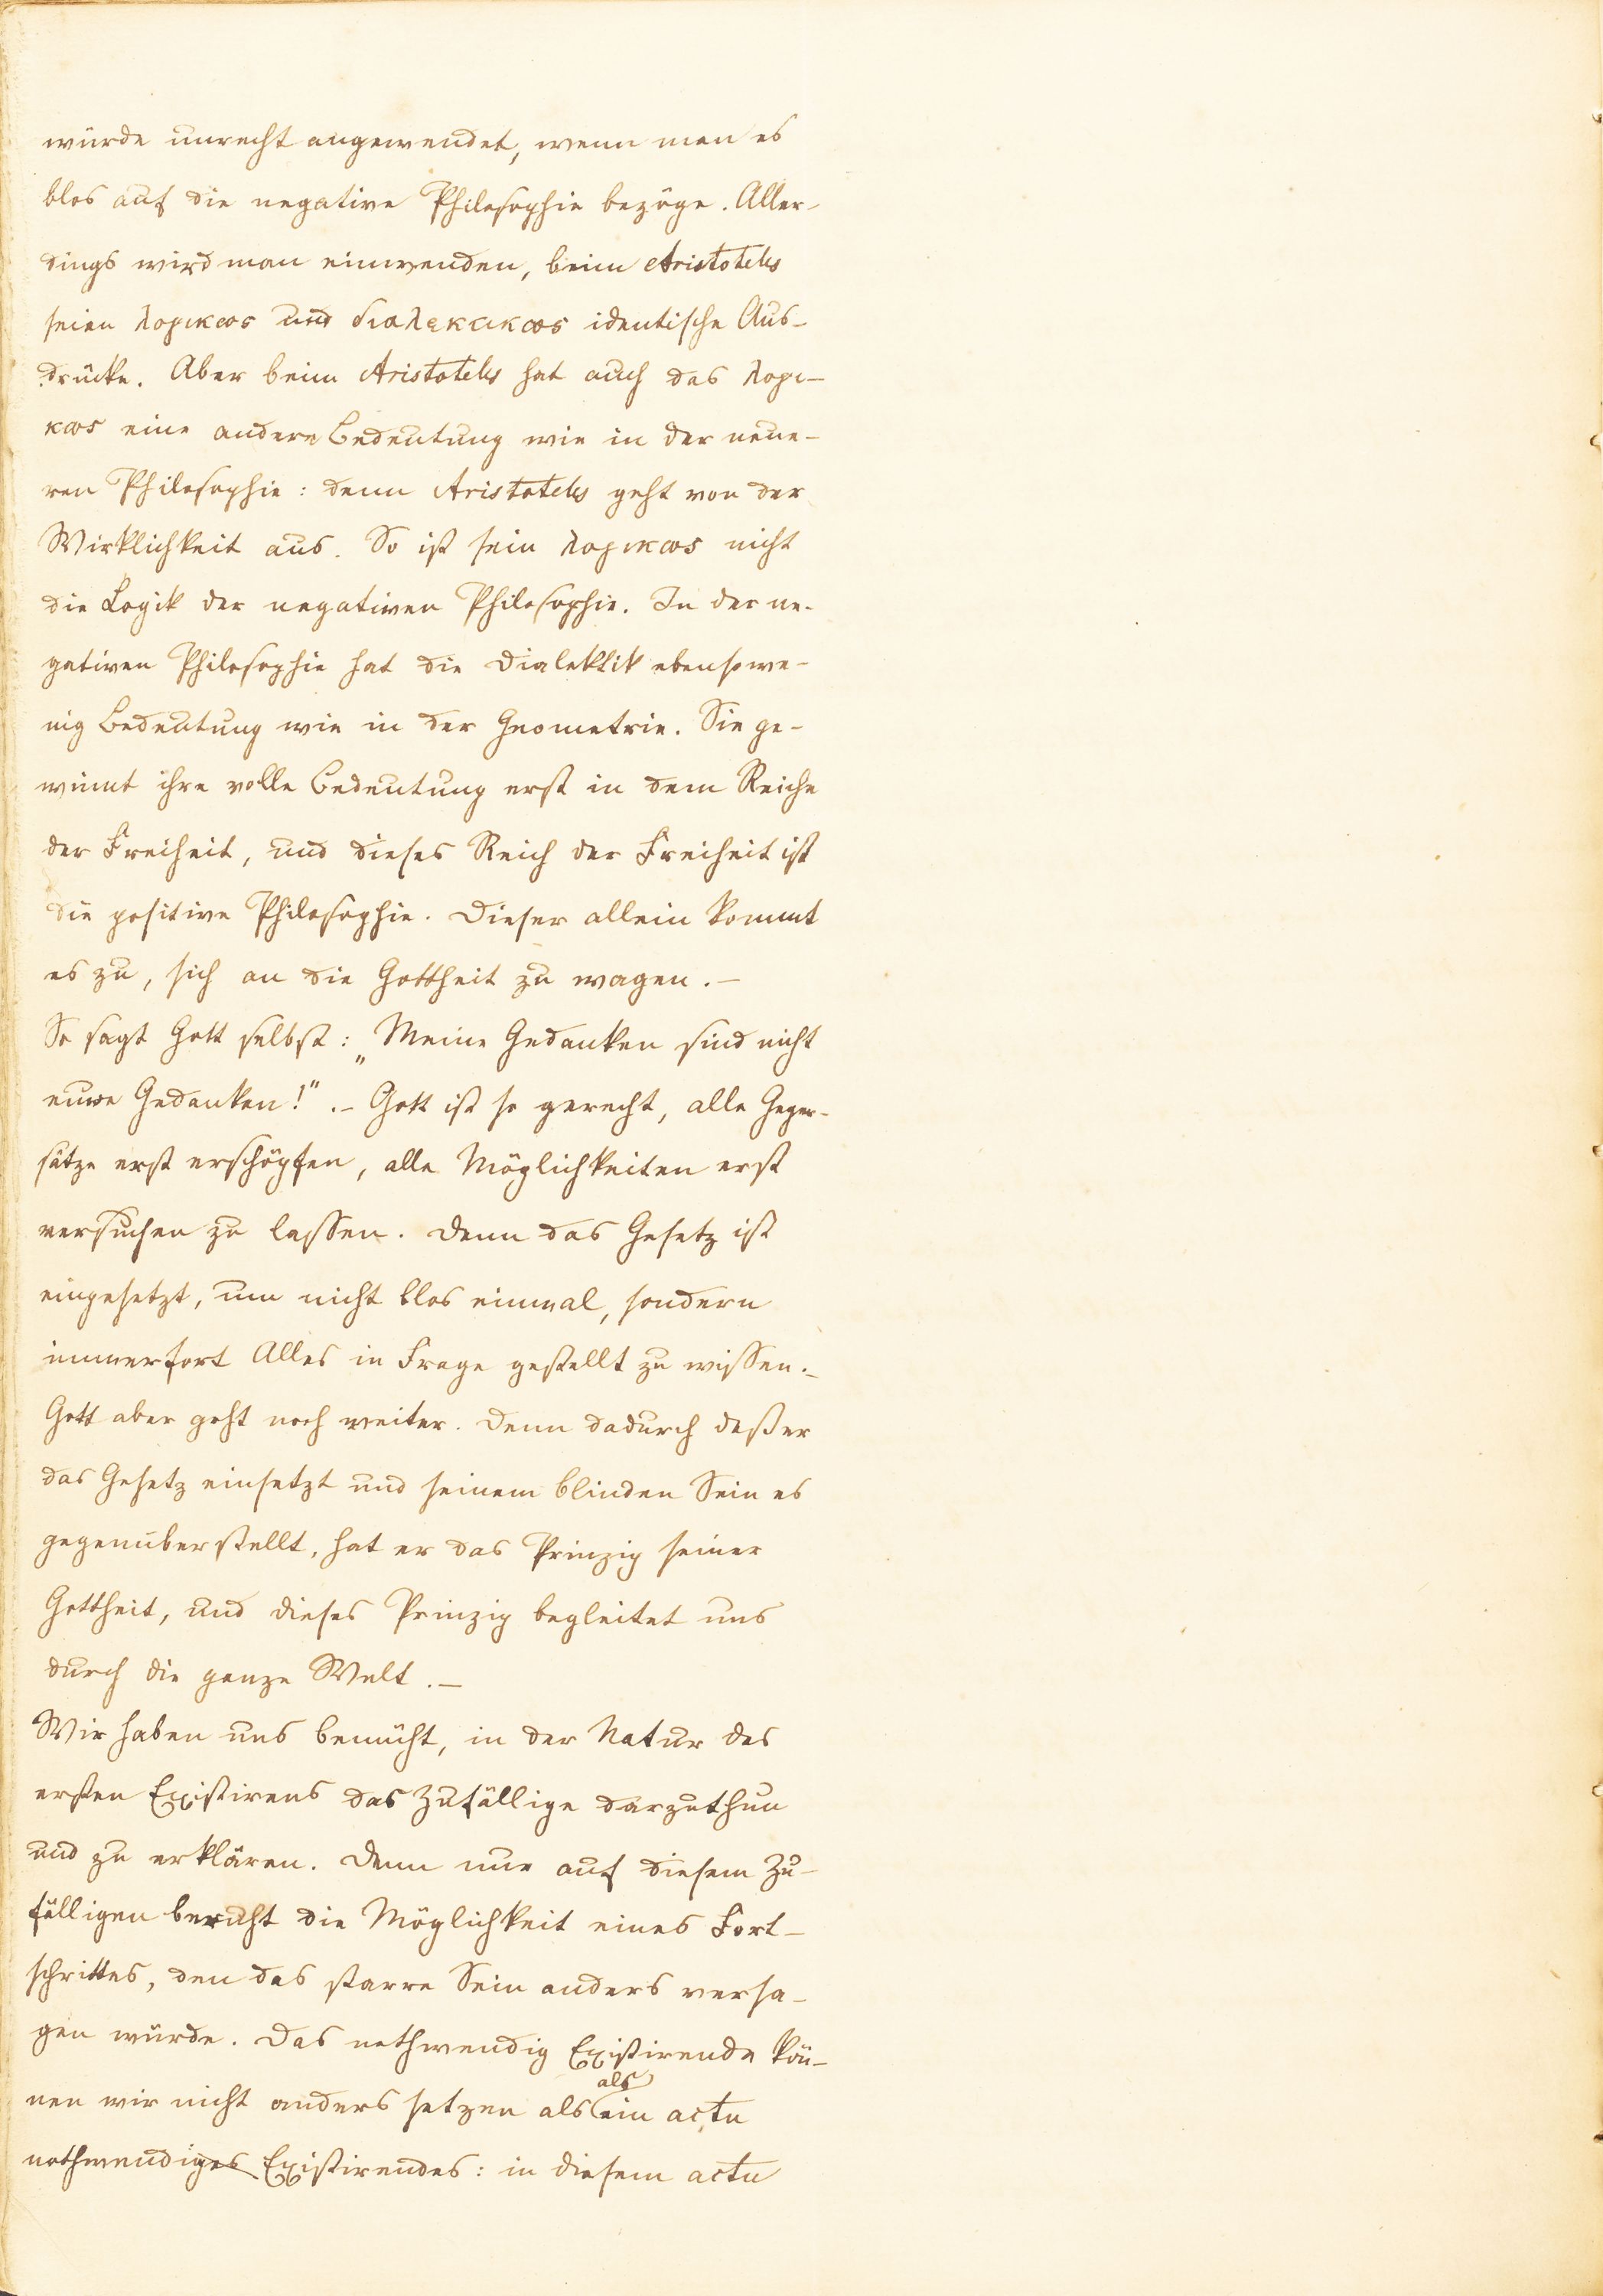 würde unrecht angewendet, wenn man es
blos auf die negative Philosophie bezöge. Aller-
dings wird man einwenden, beim Aristoteles
seien λογικως und διαλεκτικως identische Aus-
drücke. Aber beim Aristoteles hat auch das λογι-
κως eine andere Bedeutung wie in der neue-
ren Philosophie: denn Aristoteles geht von der
Wirklichkeit aus. So ist sein λογικως nicht
die Logik der negativen Philosophie. In der ne-
gativen Philosophie hat die Dialektik ebensowe-
nig Bedeutung wie in der Geometrie. Sie ge-
winnt ihre volle Bedeutung erst in dem Reiche
der Freiheit, und dieses Reich der Freiheit ist
die positive Philosophie. Dieser allein kommt
es zu, sich an die Gottheit zu wagen. –
So sagt Gott selbst: „Meine Gedanken sind nicht
eure Gedanken!" . – Gott ist so gerecht, alle Gegen-
sätze erst erschöpfen, alle Möglichkeiten erst
versuchen zu lassen. Denn das Gesetz ist
eingesetzt, um nicht blos einmal, sondern
immerfort Alles in Frage gestellt zu wissen. –
Gott aber geht noch weiter. Denn dadurch daß er
das Gesetz einsetzt und seinem blinden Sein es
gegenüberstellt, hat er das Prinzip seiner
Gottheit, und dieses Prinzip begleitet uns
durch die ganze Welt. –
Wir haben uns bemüht, in der Natur des
ersten Existirens das Zufällige darzuthun
und zu erklären. Denn nur auf diesem Zu-
fälligen beruht die Möglichkeit eines Fort-
schrittes, den das starre Sein anders versa-
gen würde. Das nothwendig Existirende kön-
nen wir nicht anders setzen als als ein actu
nothwendiges Existirendes: in diesem actu